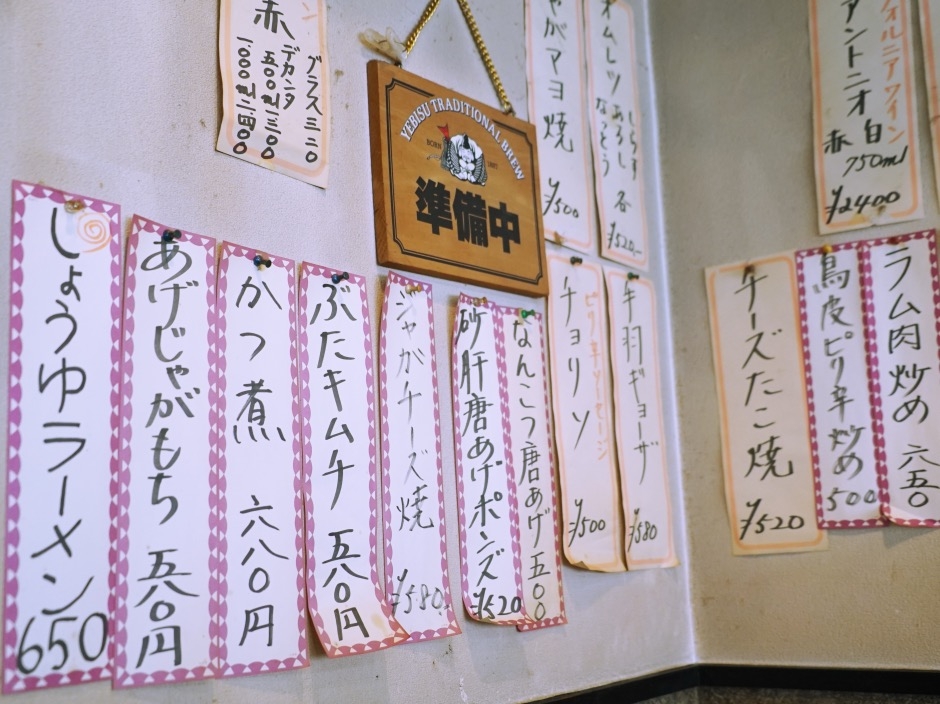 ン
赤
グラス三二〇
デカンタ
五〇〇ml一三〇〇
1,000ml二四〇〇
YEBISU TRADITIONAL BREW
BORN
準備中
がマヨ焼
¥500
オムレツ
しらす
あるいは
なっとう
各
¥520
フォルニアワイン
アントニオ
白
赤
750ml
¥2400
しょうゆラーメン
650
あげじゃがもち 五八〇円
かつ煮 六八〇円
ぶたキムチ 五八〇円
ジャがチーズ焼
¥580
砂肝唐あげポンズ
¥520
なんこつ唐あげ 五〇〇
ピリ辛ソーセージ
チョリソ
¥500
手羽ギョーザ
¥580
チーズたこ焼
¥520
鳥皮ピリ辛炒め
500
ラム肉炒め 六五〇